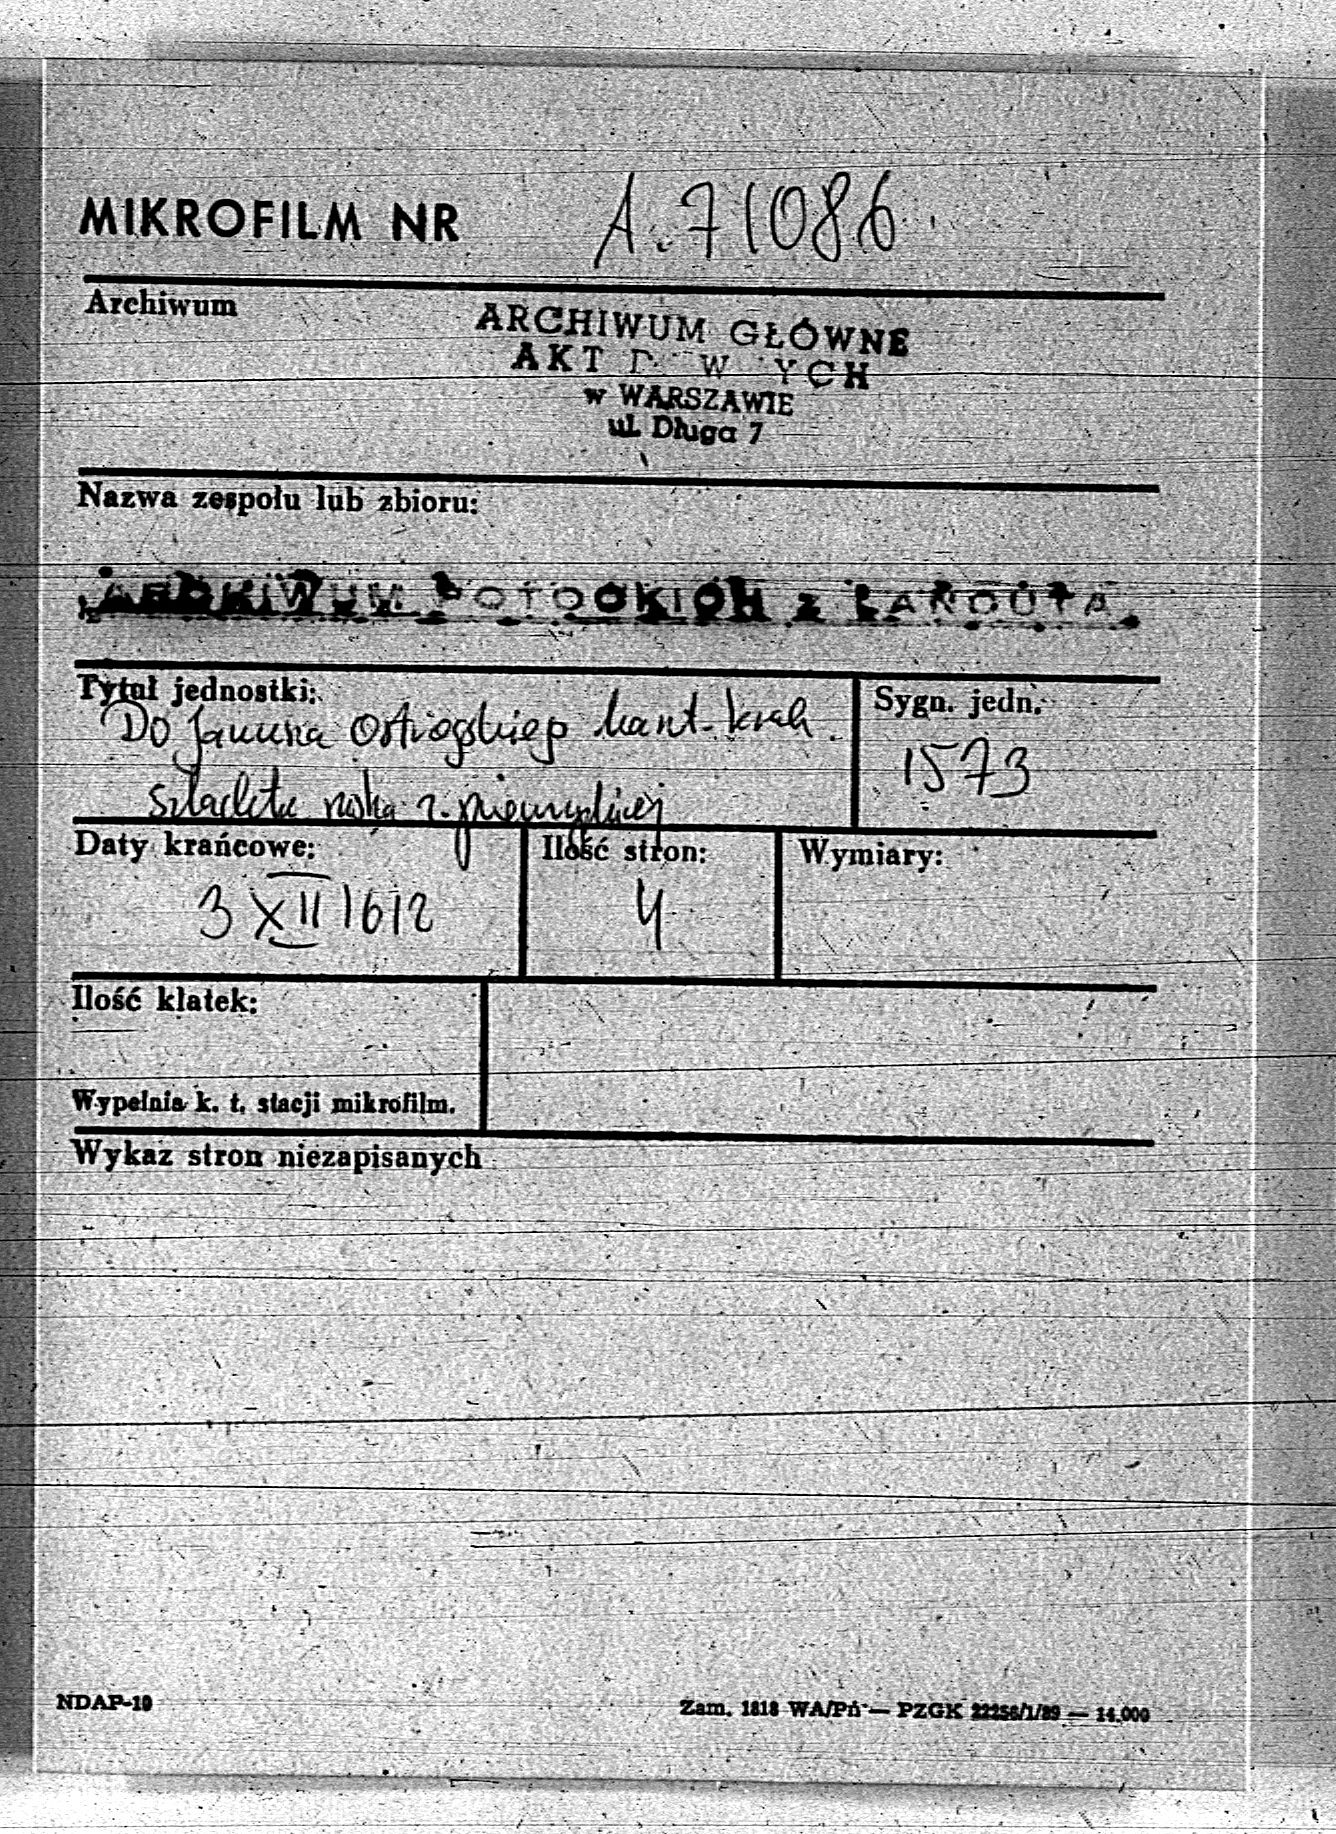 MIKROFILM NR A. 71086
Archiwum
ARCHIWUM GŁÓWNE
AKT D W YCH
w WARSZAWIE
ul. Długa 7
Nazwa zespołu lub zbioru:
ARCHIWUM POTOCKICH z ŁAŃCUTA
Tytuł jednostki:
Sygn. jedn.
Do Janusza Ostrogskiego kaszt. krak.
1573
szlachta ruska z. przemyskiej
Daty krańcowe:
Ilość stron:
Wymiary:
3 XII 1612
4
Ilość klatek:
Wypełnia k. t. stacji mikrofilm.
Wykaz stron niezapisanych
NDAP-10
Zam. 1818 WA/Pń — PZGK 22256/1/89 — 14.000